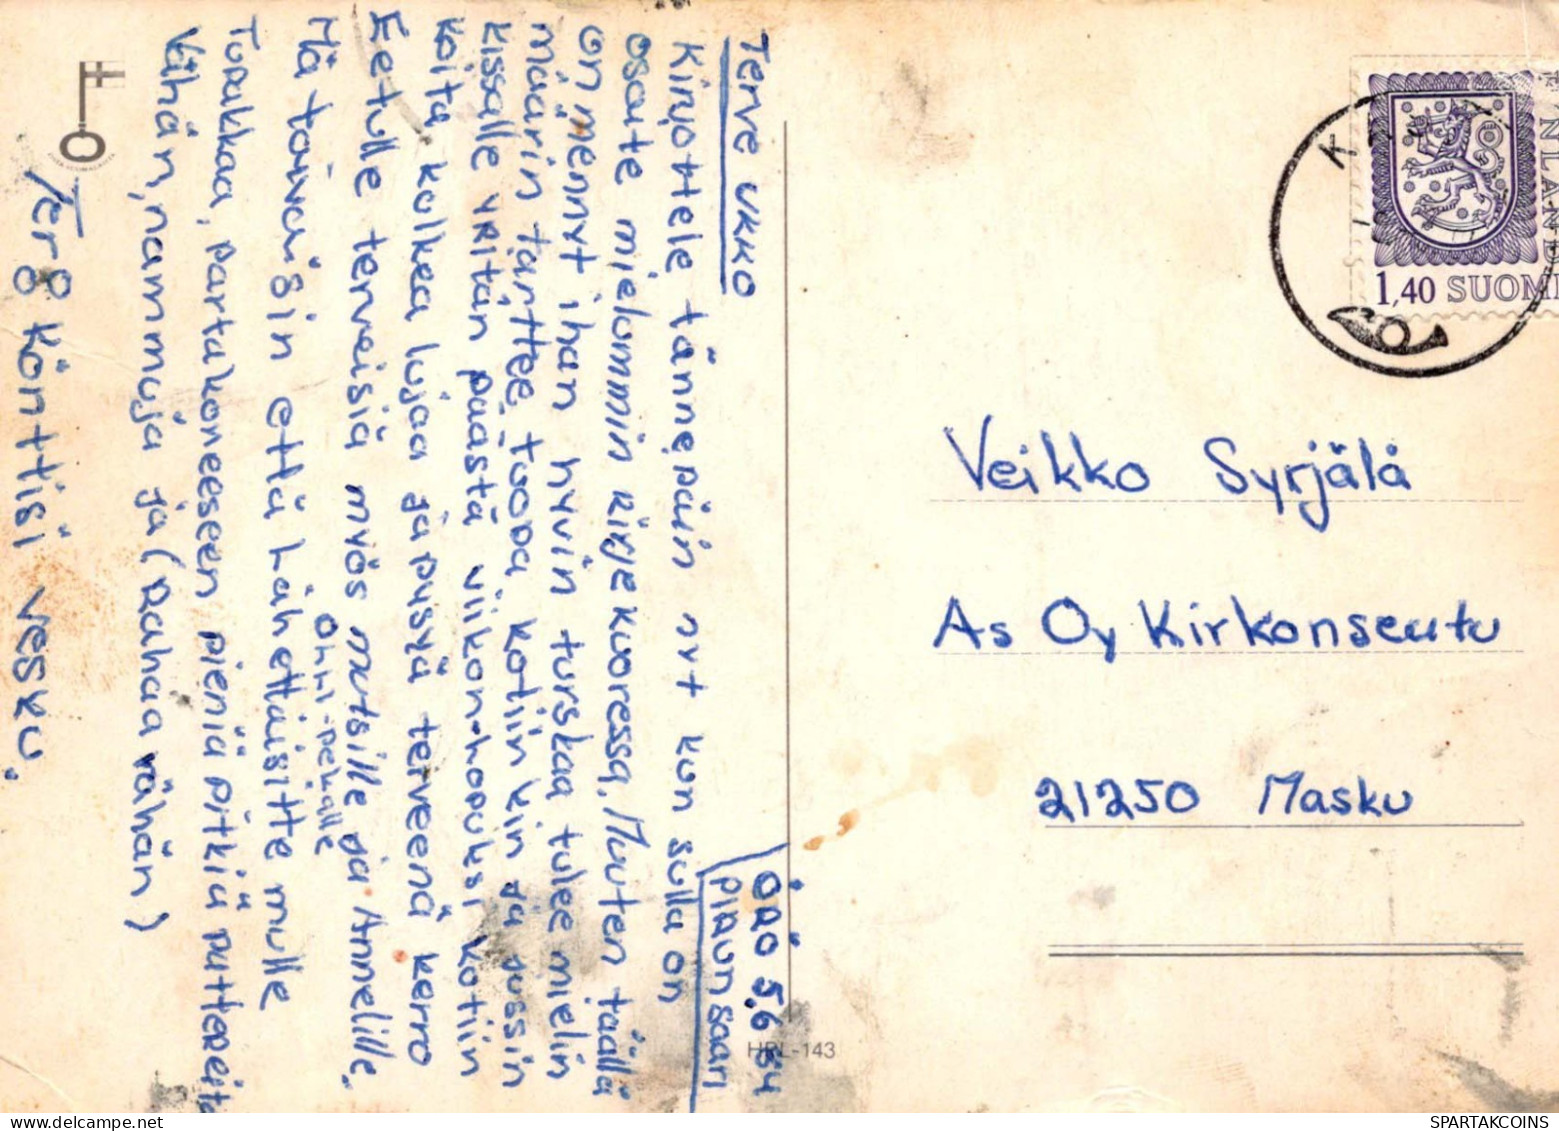 ÖRÖ 5.6 84
PIRUNSAARI
Terve ukko
Kirjottele tännepäin nyt kun sulla on
osote mielummin kirjekuoressa, Muuten täällä
on mennyt ihan hyvin turskaa tulee mielin
määrin tarttee tuopa kotiin kin ja jussin
kissalle yritän päästä viikon-hopuksi kotiin
koita kolkea lujaa ja pysyä terveenä kerro
Eetulle terveisiä myös mutsille ja Annelille.
Ohhi-pekalle
Mä toivoisin että lähettäisitte mulle
Tupakkaa, partakoneeseen pieniä pitkiä pattereita
vähän, nammuja ja (Rahaa vähän)
Ter8 könttisi vesku.
1,40 SUOMI
FINLAND
K
Veikko Syrjälä
As Oy Kirkonseutu
21250 Masku
HRL-143
SPARTAKCOINS